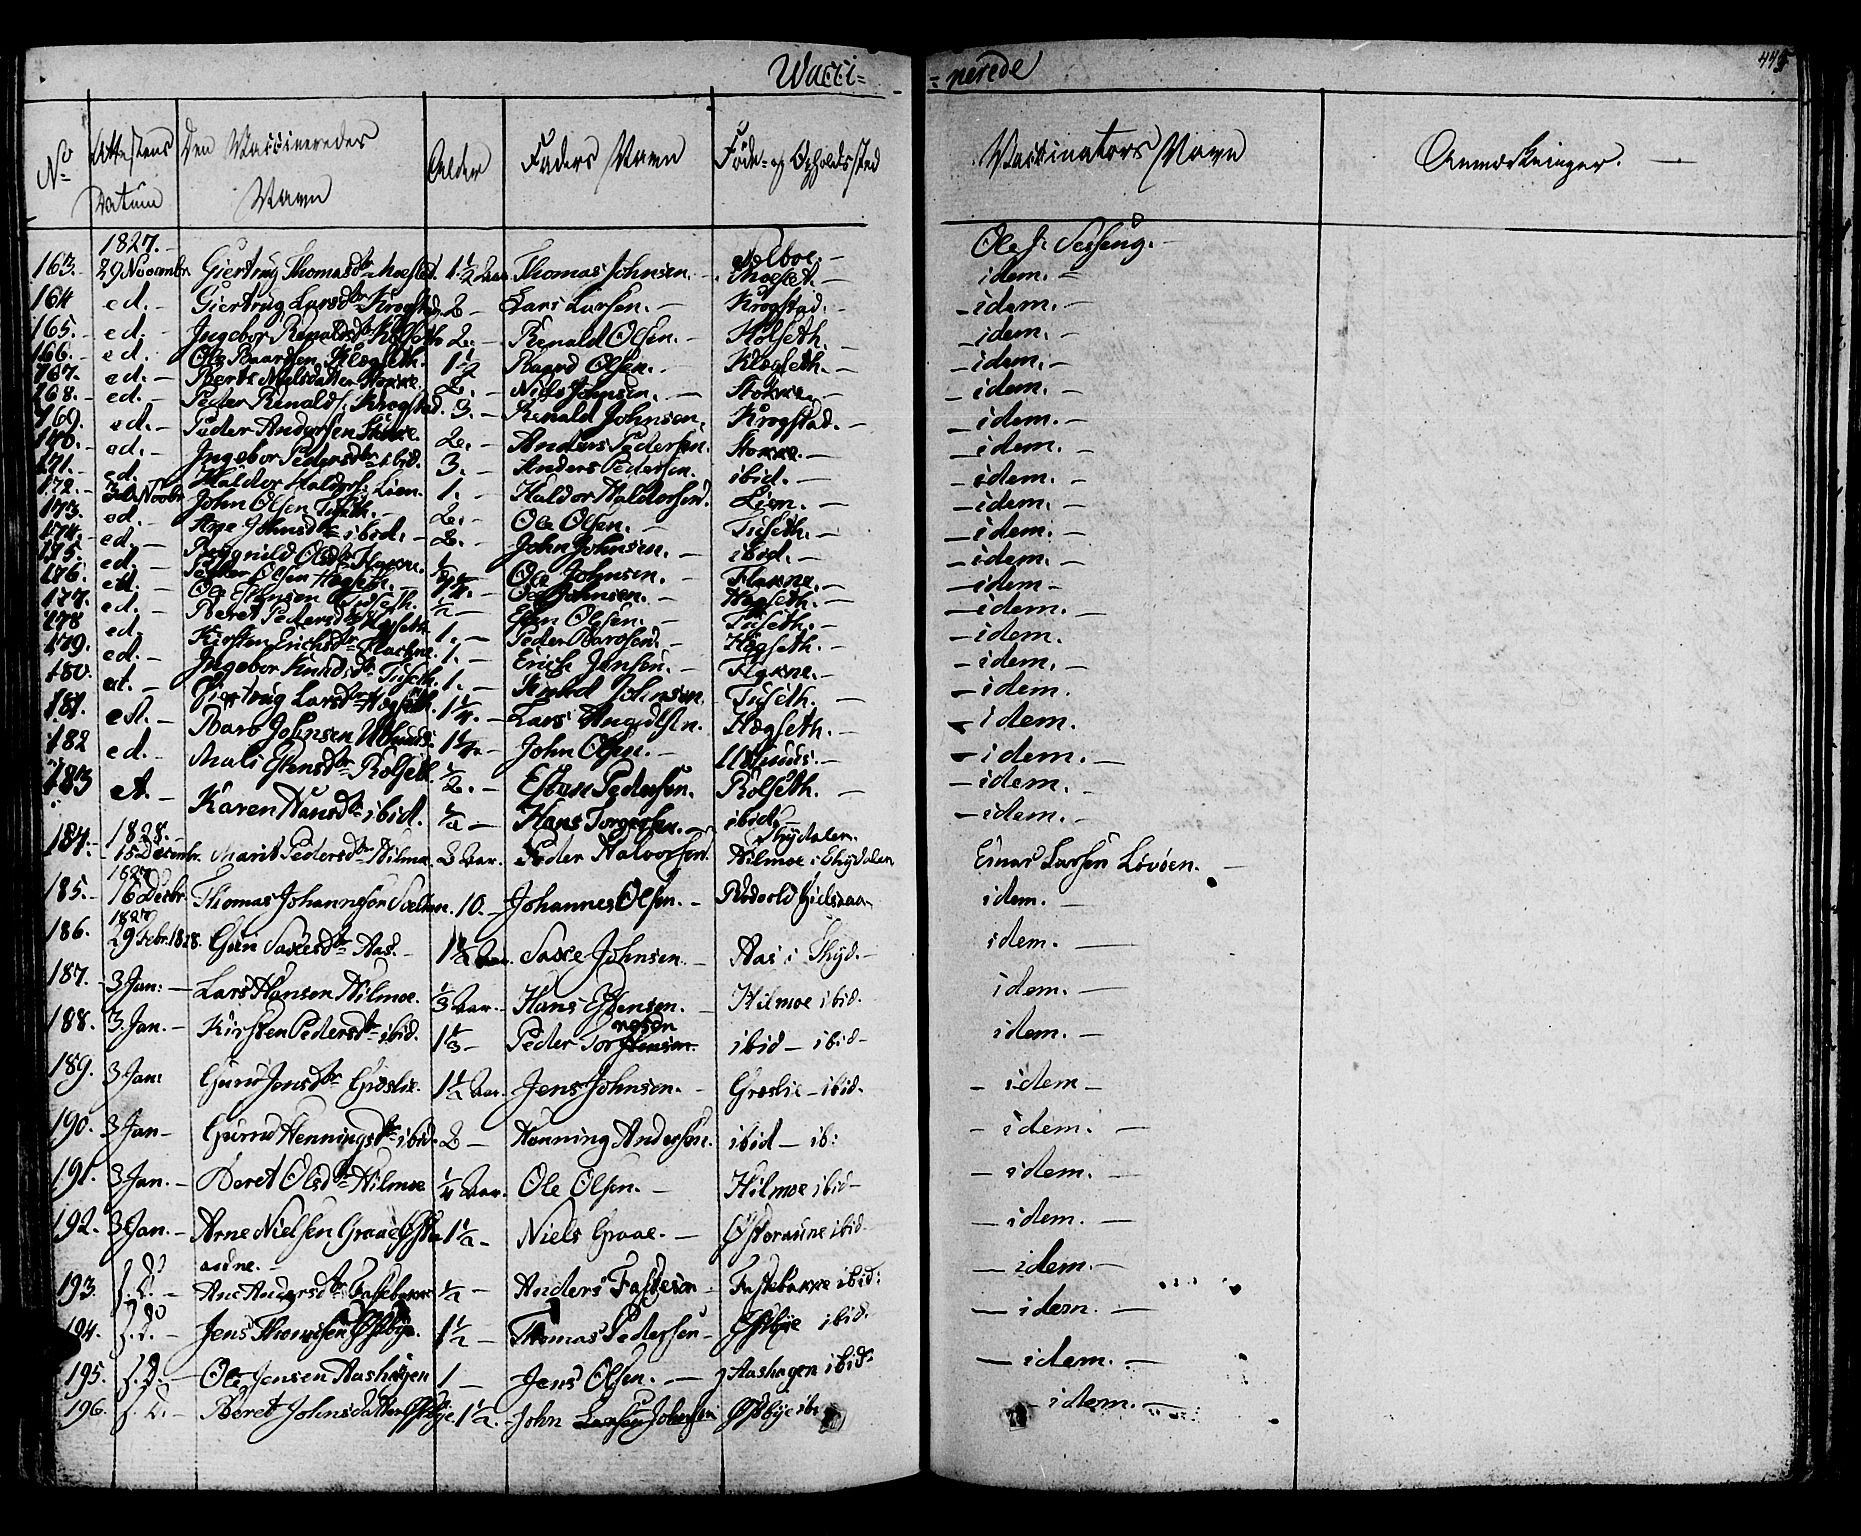 Wacci= = nerede 445
No Attestens Datum Den Vaccineredes Navn Alder Faders Navn Føde- og Opholdssted Vaccinators Navn Anmærkninger. —
1827. Selboe. — Ole J. Sesseng. —
163. 29 Novembr. Giertrug Thomasdtr Moeslet. 1 1/2 Aar Thomas Johnsen. — Moeslet. — idem. —
164 ed. — Giertrug Larsdtr Krogstad. 2 — Lars Larsen. — Krogstad. — idem. —
165. — ed. — Ingebor Renaldsdtr Kolseth 2. — Renald Olsen. — Kolseth. — idem. —
166. — ed. Ole Baardsen Klogseth. 1 1/2 Baard Olsen. — Klogseth. — idem. —
167. — ed. — Berts Nielsdatter Stokke. 2. — Niels Johnsen. — Stokke. — idem. —
168. — ed. — Peder Renalds. Krogstad. 3. — Renald Johnsen. Krogstad. — idem. —
169. ed. — Peder Andersen Stokke. 2. — Anders Pedersen. Stokke. — idem. —
170. — ed. — Ingebor Pedersdtr ibid. 3. — Anders Pedersen. ibid. — idem. —
171. — ed. Haldor Haldors. Lien. 1. — Haldor Haldorsen. Lien. — idem. —
172. — Novbr John Olsen Tuseth. — 2. — Ole Olsen. — Tuseth. — idem. —
173. — ed. — Johnsdtr ibid. — 2. — John Johnsen. — ibid. — idem. —
174. — ed. — Ragnild Olsdtr Flakne. Ole Johnsen. — Flakne. — idem. —
175. ed. — Peder Olsen Hogseth. — Ole Johnsen. — Hogseth. — idem —
176. — ed. — Ole Estensen Tuseth. 1/2 — Esten Olsen. — Tuseth. — idem. —
177. ed. — Beret Pedersdtr Hogseth. 1. — Peder Barosen. — Hogseth. — idem.
178 ed. — Kirsten Erichsdtr Flackne. 1. — Erich Jensen. — Flakne. — idem. —
179. ed. — Ingebor Knudsdtr Tuseth. 1. — Knud Johnsen. Tuseth. — idem.
180. ed. — Giertrug Larsdtr Hogseth. 1 1/4. — Lars Hogseth. — idem.
181. ed. — Baro Johnsen 1 1/4 — John Olsen. — idem. —
182 ed. — Mali Estensdtr Rolseth. 1/2. — Esten Pedersen. Rolseth. — idem. —
183 ed. — Karen Hansdtr ibid. 1/2 — Hans Torgersen. — ibid. — idem. —
184. — 1828. 15 Decembr. Marit Pedersdtr Hilmo. 3 Aar. Peder Halvorsen. Thydalen. Hilmoe i Thydalen Einar Larsen Løvøen. —
185. — 1827 16 Decbr. Thomas Johannesen 10. — Johannes Olsen. — idem. —
186. 1827 29 Febr. 1828. Guri Saxesdtr Aas. — 1 1/2 Aar. Saxe Johnsen. Aas i Thyd. — idem. —
187. — 3 Jan: — Lars Hansen Hilmoe. 1/3 Aar. Hans Estensen. — Hilmoe ibid. idem. —
188. 3. Jan. — Kirsten Pedersdtr ibid. 1 1/3 — Peder Torstensen. ibid — ibid — idem. —
189. 3 Jan: Guru Jensdtr Græslie. 1 1/2 Aar. Jens Johnsen. — Græslie — ibid. — idem —
190. 3 Jan — Guru Henningsdtr ibid. 2 — Henning Andersen. ibid — ib: — idem. —
191. 3 Jan. — Beret Olsdtr Hilmoe 1/4 Aar. Ole Olsen. — Hilmoe ibid — — idem. —
192. 3 Jan. — Arne Nielsen Graae Øster aune. — 1 1/2 — Niels Graae. — Østeraune ibid — idem. —
193. s. D. — Ane Andersdtr Fassebakke 1/2 — Anders Fastesen Fassebakke ibid: — idem. —
194. s. D. — Jens Thomesen Østbye. 1 1/2 — Thomas Pedersen — Østbye ibid. — idem. —
195. s. D. — Ole Jensen Aashagen 1 — Jens Olsen. — Aashagen ibid: — idem. —
196. s. D. — Beret Johnsdatter Østbye 1 1/2. — John Larsen Johnsen Østbye ib — idem. —